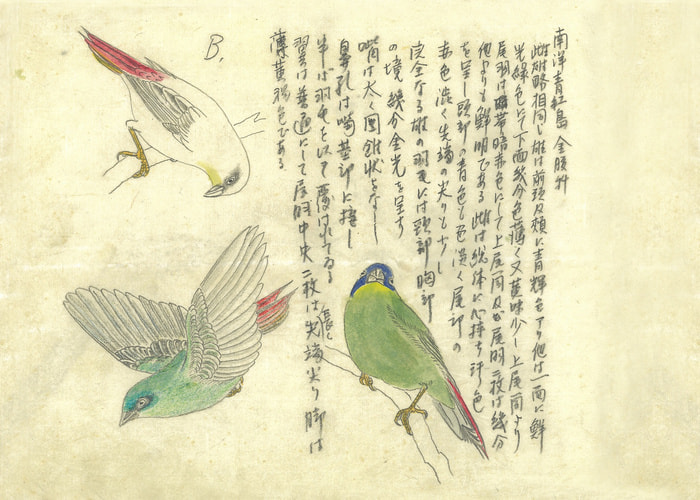 南洋青紅鳥 金腹科
雌雄略相同じ雄は前頭及頬に青輝色アリ他は一面に鮮
光緑色にて下面幾分色薄く又黄味少し上尾筒より
尾羽は暗赤色にして上尾筒及 尾羽二枚は幾分
他よりも鮮明である 雌は総体に心持ち汗色
を呈し頭部の青色も色淡く尾部の
赤色淡く先端の尖りも少し
完全なる雄の羽毛には頸部胸部
の境 幾分金光を呈す
嘴は太く円錐状をなし
鼻孔は嘴基部に接し
半ば羽毛を以て覆はれてゐる
翼は普通にして尾羽中央二枚は長く先端尖り 脚は
薄黄褐色である
B.